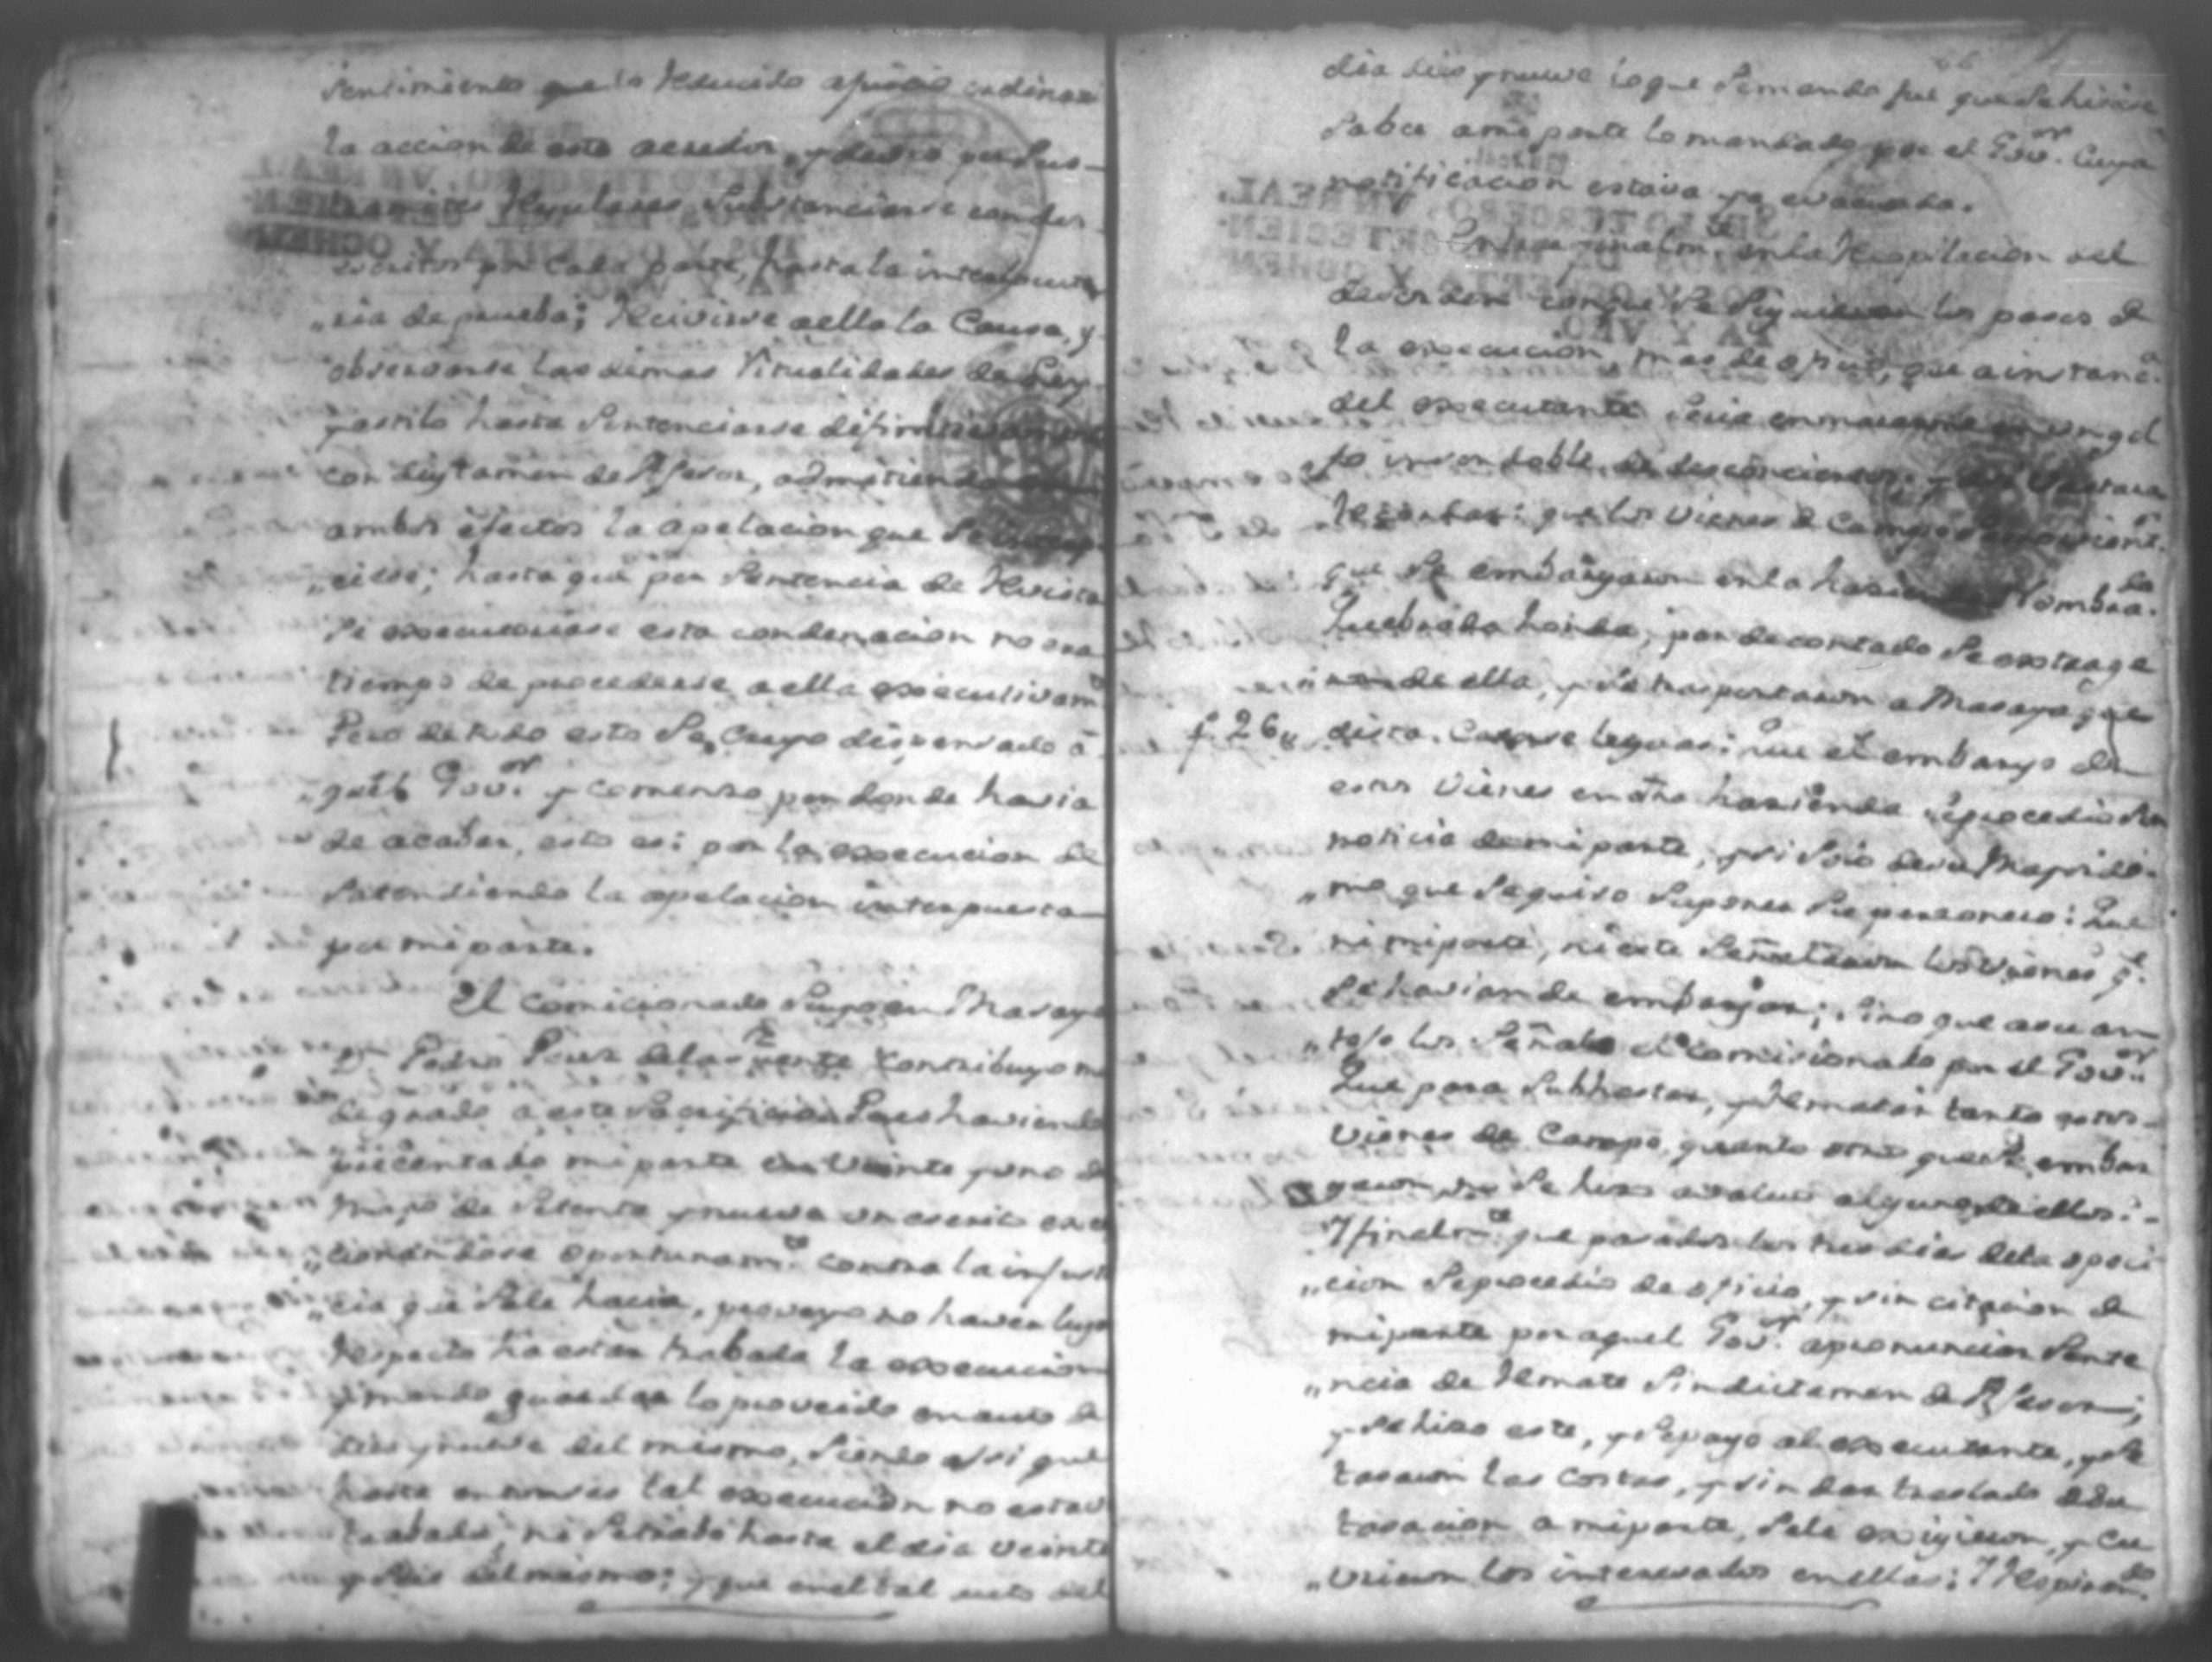 sentimiento que lo Reducido a juicio ordinar
la accion de este acredor, y devio por sus
tramites Regulares Substanciarse con dos
escritos por Cada parte, hasta la interlocuto
"ria de prueba; Recivirse a ella la Causa, y
observarse las demas Ritualidades de Ley
y estilo hasta Sentenciarse difinitivamente
con dictamen de Asesor, admitiendo en
ambos efectos la apelacion que se
"ciese; hasta que por Sentencia de Revista
se executoriase esta condenacion no era
tiempo de procederse a ella executivamte
Pero de todo esto se Creyo dispensado a
"quel Govor. y comenzo por donde havia
de acabar, esto es: por la execucion de
satendiendo la apelacion interpuesta
por mi parte.
El Comicionado Suyo en Masaya
Dn. Pedro Perez de la Fuente Contribuyo
de grado a este Sacrificio: Pues haviendo
precentado mi parte en veinte y uno de
Mayo de Setenta y nueve un escrito
"cionandose oportunamte. contra la injust
"cia que se le hacia, proveyo no haver lugar
respecto ha estar trabada la execucion
y mando guardar lo proveido en auto de
dies y nueve del mismo, siendo assi que
hasta entonces tal execucion no estava
trabada, ni se trabo hasta el dia veinte
y seis del mismo; y que en el tal auto del
dia dies y nueve lo que se mando fue que se hiciese
saber a mi parte lo mandado por el Govor. Cuya
notificacion estava ya evacuada.
en la Recopilacion del
desorden con que se siguieron los pasos de
la execucion, mas de oficio, que a instanca.
del executante seria enmararme en un gol
"fo insondable de desconciertos; y
que los Vienes de Campo
que se embargaron en la hacienda Nombrada.
Quebrada honda, por de contado se extrage
"ron de ella, y se trasportaron a Masaya que
f. 26,, dista Catorse leguas: Que el embargo de
estos Vienes en dha hacienda se procedio sin
noticia de mi parte, y si solo de su Mayordo-
"mo que se quiso suponer su personero: Que
ni mi parte, ni este señalaron los vienes q.
se havian de embargar; sino que a su an
"tojo los señalo el comicionado por el Govor.
Que para Subhastar, y Rematar tanto estos
Vienes de Campo, quanto otros que se embar
garon no se hizo avaluo alguno de ellos:
Y finalmte. que pasados los tres dias de la oposi
"cion se procedio de oficio, y sin citacion de
mi parte por aquel Govor. a pronunciar Sente
"ncia de Remate sin dictamen de Asesor;
y se hizo este, y se pago al executante, y se
tasaron las Costas, y sin dar traslado de su
tasacion a mi parte, se le exigieron, y Cu
"vrieron los interesados en ellas; Y